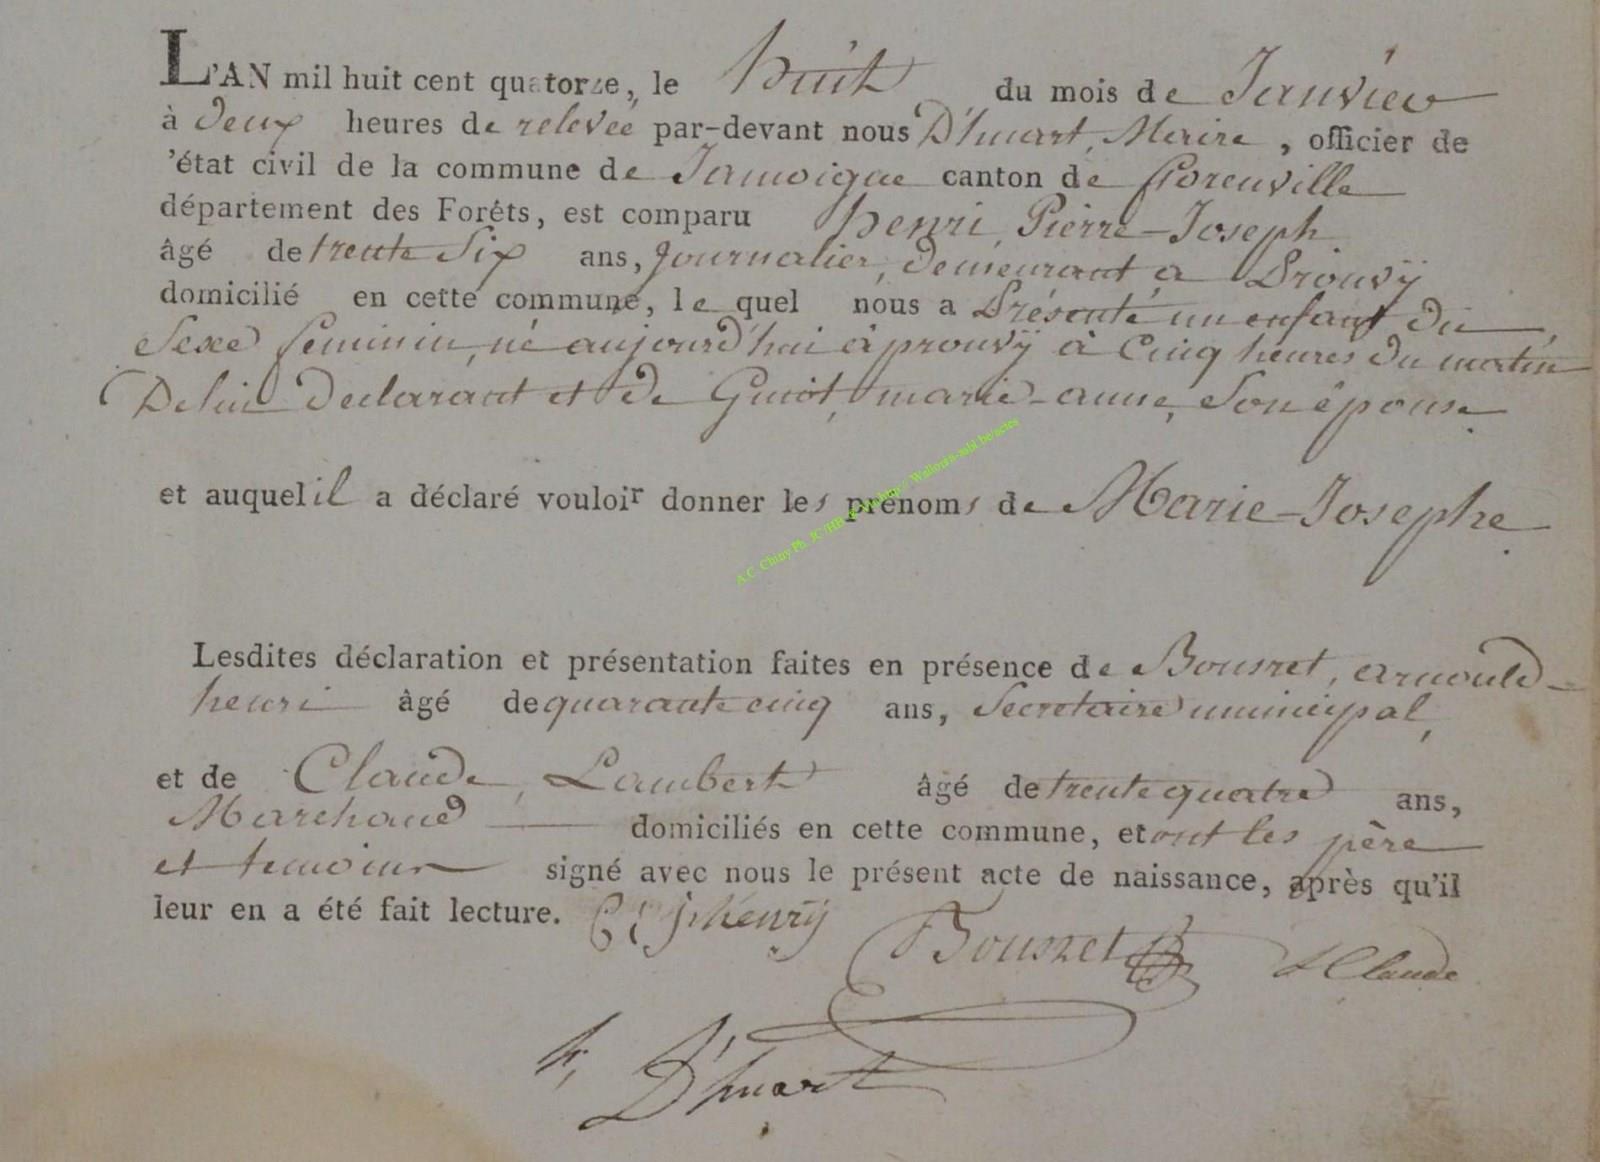 L'AN mil huit cent quatorze, le huit du mois de Janvier
à deux heures de relevée par-devant nous D'huart, Maire, officier de
'état civil de la commune de Jamoigne canton de florenville
département des Forêts, est comparu henri, Pierre-Joseph
âgé de trente Six ans, journalier, demeurant a Prouvÿ
domicilié en cette commune, le quel nous a Présenté un enfant du
Sexe feminin, né aujourd'hui à prouvÿ à Cinq heures du matin
De lui declarant et de Guiot, marie-anne, Son épouse
et auquel il a déclaré vouloir donner les prénoms de Marie-Josephe
A.C. Chiny Ph. JC/HB
Lesdites déclaration et présentation faites en présence de Bousret, arnould-
henri âgé de quarante cinq ans, Secretaire municipal,
et de Claude, Lambert âgé de trente quatre ans,
Marchand domiciliés en cette commune, et ont les père
et temoins signé avec nous le présent acte de naissance, après qu'il
leur en a été fait lecture. henrÿ
Bousret L Claude
h, D'huart